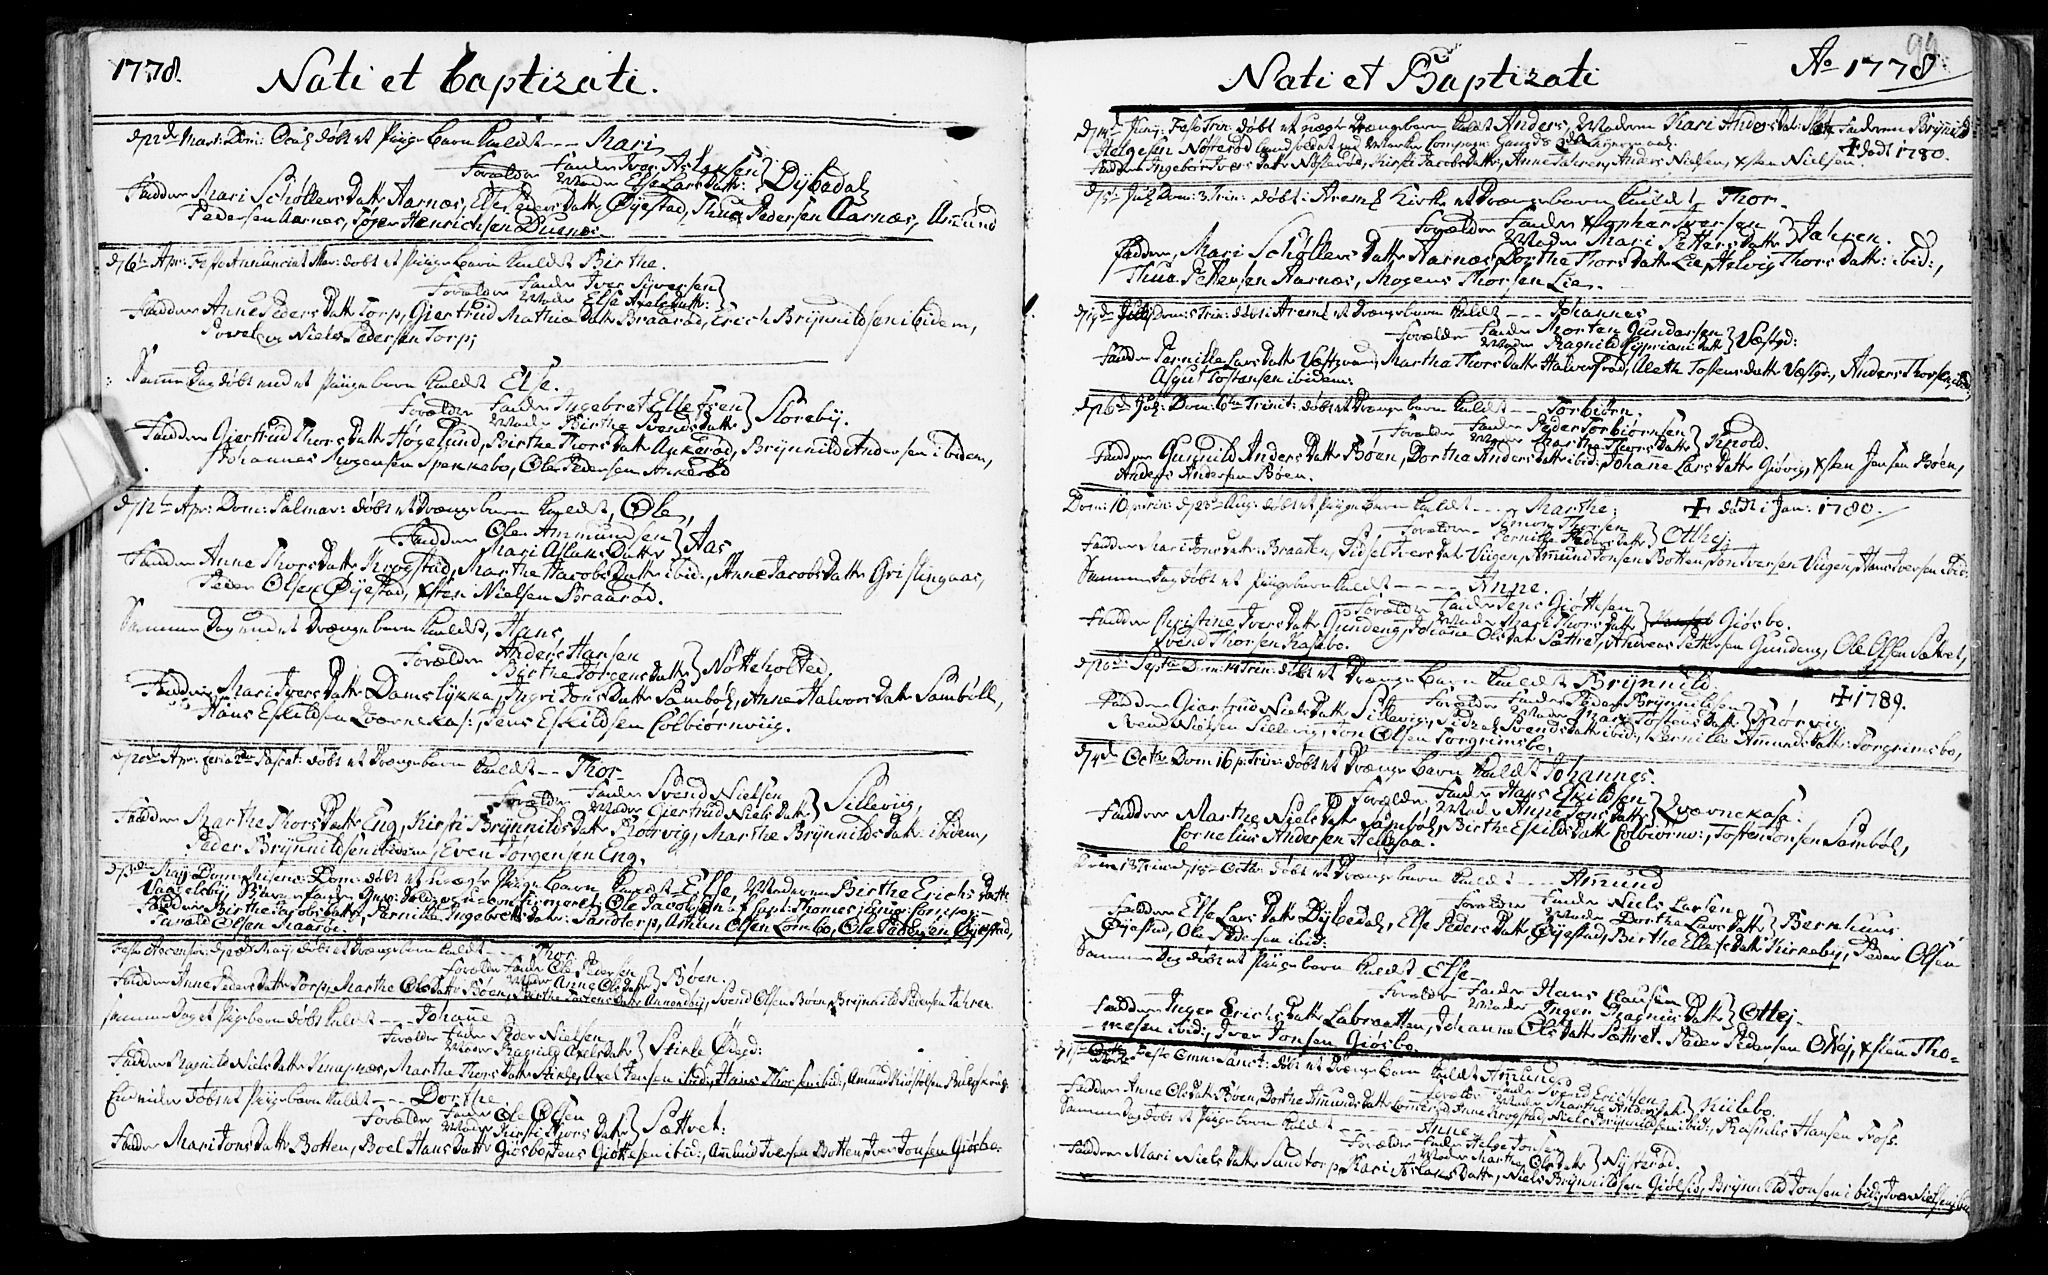 1778.
Nati et baptizati.
Mart: Dom: Oculi døbt et Piigebarn kaldt --- Mari
Forældre Fader Iver Aslaksen
Moder Else Lars Datt: } Dybedal
Faddere Mari Schøllers Datt Aarnæs, Else Peders Datt Øyestad, Thue Pedersen Aarnæs, Amund
Pedersen Aarnæs, Henrichsen
d 6te Apr: Festo Annunciat Mar: døbt et Piigebarn kaldt Birthe.
Forældre Fader Iver Syversen
Moder Else Axels Datt: }
Faddere Anne Peders Datt Torp, Giertrud Mathiæ Datt Braarød, Erich Brynnildsen ibidem,
Povel og Niels Pedersen Torp;
Samme Dag døbt end et Piigebarn kaldt Else.
Forældre Fader Ingebret Ellefsen
Moder Birthe Svends Datt } Storeby.
Faddere Giertrud Thors Datt Høgelund, Birthe Thors Datt Ankerød, Brynnild Andersen ibidem,
Johannes Mogensen Spekkebo, Ole Pedersen Ankerød
d 12te Apr: Dom: Palmar: døbt et Drængebarn kaldt, Ole,
Ole Ammundsen
Mari Aslaks Datter } Aas
Faddere Anne Thors Datt Krogstad, Marthe Jacobs Datt ibid:, Anne Jacobs Datt Grislingaas,
Peder Olsen Øyestad, Xsten Nielsen Braarød.
Samme Dag end et Drængebarn kaldt, Hans
Forældre Anders Hansen
Birthe Jørgens Datt } Nøtteholted
Faddere, Mari Ivers Datt Damslykka, Ingri Jons Datt Sambøl, Anne Halvors Datt Sambøll,
Hans Eskildsen Qværnekas:, Jens Eskildsen Colbiørnviig.
d 20de Apr: feria 2da Pascat: døbt et Drængebarn kaldt -- Thor
Forældre Fader Svend Nielsen
Moder Giertrud Niels Datt } Sillevig,
Faddere Marthe Thors Datt Eng, Kirsti Brynnilds Datt Rørvig, Marthe Brynnilds Datt: ibidem,
Peder Brynnildsen ibidem, Even Jørgensen Eng.
Maji Dom: Miseric: Dom: døbt et uægte Piigebarn kaldt Else, Moderen Birthe Erichs Datt
Ole Jacobsen Capt: Thomes
Faddere Birthe Jacobs Datt, Pernille Ingebrets Datt: Sandtorp, Amun Olsen Lombo, Ole Pedersen Øyestad,
Olsen
Festo Ascensio: Maji døbt et Drængebarn kaldt --- Thor
Forældre Fader Ole Pedersen
Moder Anne Ols Datt } Bøen.
Faddere Anne Peders Datt Torp, Marthe Ols Datt Bøen, Svend Olsen Bøen, Brynnild Pedersen Jahren.
Samme Dag et Piigebarn døbt kaldt --- Johane
Forældre Fader Peder Nielsen
Moder Ragnild Axels Datt } Stirte Ødegd:
Faddere Ragnild Niels Datt Knapnæs, Marthe Thors Datt Stirte, Axel Jensen ibid:, Hans Thorsen ibid:, Amund
Endvidere døbt et Piigebarn kaldt --- Dorthe
Forældre Fader Ole Olsen
Moder Kirsti Thors Datt } Sættret:
Faddere Mari Jons Datt Botten, Boel Hans Datt Giøsbo, Jens Giøttesen ibid:, Amund Iversen Botten, Iver Jonsen Giøsbo.
99.
Nati et Baptizati
Ao 1778
d 14de Junij: Festo Trin: døbt et uægte Drængebarn kaldt Anders, Moderen Kari Anders Dat: Faderen Brynnild
Helgesen Nøterød ✝ død 1780.
Faddere Ingebor Ivers Datt Nøsterød, Kirsti Jacobs Datt, Anne Jahren, Anders Nielsen, Xsten Nielsen
d 5te Julj Dom: 3 Trin: døbt i Aremk Kirke et Drængebarn kaldt, Thor
Forældre Fader Xstopher Iversen
Moder Mari Petters Datt } Jahren.
Faddere, Mari Schøllers Datt Aarnæs, Dorthe Thors Datt Lie, Helvig Thors Datt: ibid:,
Thue Pettersen Aarnæs, Mogens Thorsen Lie.
d 19de Julj Dom: 5 Trin: døbt i Aremk et Drængebarn kaldt --- Johannes
Forældre Fader Morten Gundersen
Moder Ragnild Cyprians Datt } Væstgd:
Faddere Pernille Lars Datt, Martha Thors Datt Halversrød, Aleth Tostens Datt Væstgd:, Anders Thorsen
Asgut Tostensen ibidem.
d 26de Julj: Dom: 6te Trinit: døbt et Drængebarn kaldt --- Torbiørn.
Forældre Fader Peder Torbiørnsen
Moder Marthe Thors Datt } Kjrold.
Faddere Gunnild Anders Datt Bøen, Dorthe Anders Datt ibid:, Johane Lars Datt Giøvig, Xsten Jensen Bøen,
Anders Andersen Bøen.
Dom: 10 p: Trin: d 23de Aug: døbt et Piigebarn kaldt --- Marthe; ✝ død i Jan: 1780.
Forældre Simon Thorsen
Pernille Peders Datt } Otthej
Faddere Mari Jons Datt: Braaten, Sidsel Ivers Dat: Viigen, Amund Jonsen Botten, Jon Iversen Viigen, Hans Iversen ibid:
Samme Dag døbt et Piigebarn kaldt ---- Anne.
Forældre Fader Jens Giøttesen
Moder Mari Thors Datt } Giøsbo.
Faddere Christine Ivers Datt Gundeng, Johane Ols Dat: Sættret, Andreas Pettersen Gundeng, Ole Olsen Sættret,
Svend Thorsen Kasebo.
d 20de Septbr Dom: 14 Trin: døbt et Drængebarn kaldt Brynnild ✝ 1789.
Forældre Fader Peder Brynnildsen
Moder Mari Tostens Datt } Rørvig
Faddere Giertrud Niels Datt Sillevig, Sidzel Svends Datt ibid:, Pernille Amunds Datt: Torgrimsbo,
Svend Nielsen Sillevig, Jon Olsen Torgrimsbo.
d 4de Octbr Dom 16 p: Trin: døbt et Drængebarn kaldt Johannes.
Forældre Fader Hans Eskildsen
Moder Anne Jons Datt } Qværnekase:
Faddere Marthe Niels Datt Sambøl, Birthe Eskilds Datt Colbiørnv:, Tosten Jonsen Sambøl,
Cornelius Andersen Hellesaa.
Dom 18 Trin: d 18de Octbr: døbt et Drængebarn kaldt --- Amund
Forældre Fader Niels Larsen
Moder Dorthe Lars Datt } Bernhuus
Faddere Else Lars Datt Dybedal, Else Peders Datt Øyestad, Birthe Ellefs Datt Kirkeby, Peder Olsen
Øyestad, Ole Pedersen ibid:
Samme Dag døbt et Piigebarn kaldt Else
Forældre Fader Hans Clausen
Moder Inger Magnus Datt } Otthej
Faddere Inger Erichs Datt Labraatten, Johanne Ols Datt Sættret. Peder Pedersen Otthej, Xsten Tho-
mesen ibid:, Iver Jonsen Giøsbo.
Festo Omn: Sanct: døbt et Drængebarn kaldt Amund
Forældre Fader Svend Erichsen
Moder Marthe Anders Datt } Kiilebo.
Faddere Anne Ols Datt Bøen, Dorthe Amunds Datt, Anne Krogstad, Niels Brynnildsen ibid:, Rasmus Hansen Foss.
Samme Dag døbt et Piigebarn kaldt ----- Anne
Forældre Fader Helge Jonsen
Moder Marthe Ols Datt } Nysterød.
Faddere Mari Niels Datt Sandtorp, Kari Aslaks Datt, Niels Brynnildsen Giølsjø, Brynnild Jonsen ibid:, Iver Nielsen